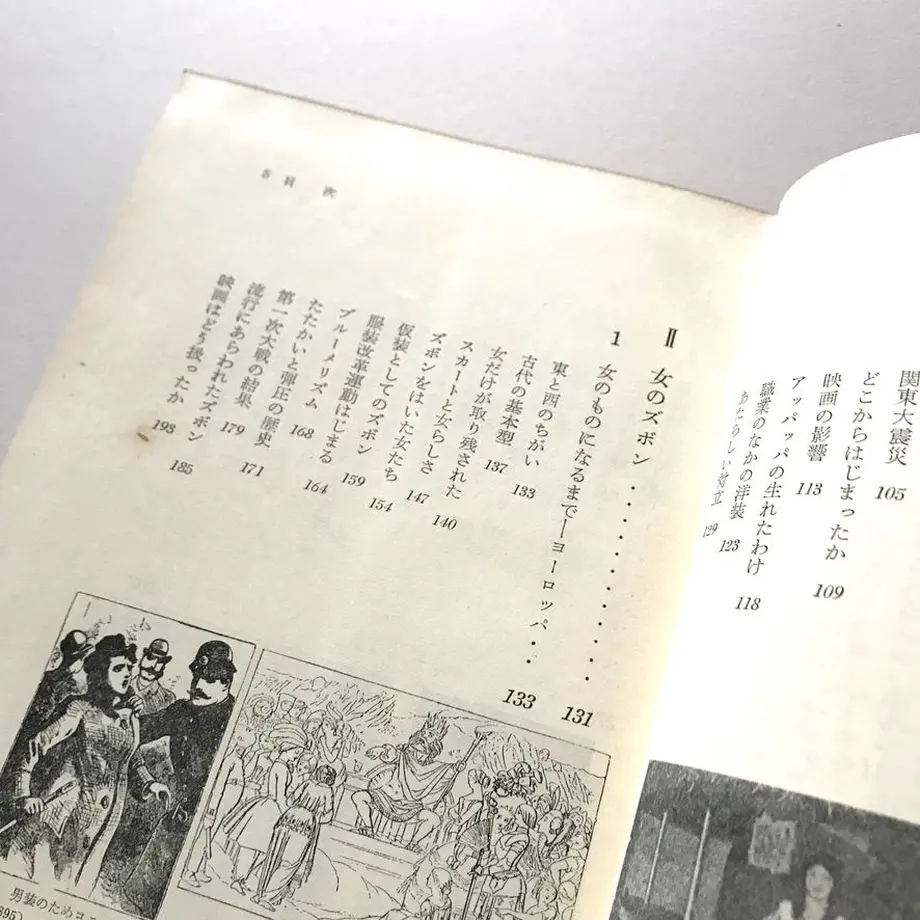 関東大震災 105
どこからはじまったか 109
映画の影響 113
アッパッパの生れたわけ 118
職業のなかの洋装 123
あたらしい対立 129
5 目 次
Ⅱ 女のズボン・・・・・・・・・・・・ 131
1 女のものになるまで―ヨーロッパ・・ 133
東と西のちがい 133
古代の基本型 137
女だけが取り残された 140
スカートと女らしさ 147
ズボンをはいた女たち 154
仮装としてのズボン 159
服装改革運動はじまる 164
ブルーメリズム 168
たたかいと弾圧の歴史 171
第一次大戦の結果 179
流行にあらわれたズボン 185
映画はどう扱ったか 193
男装のため
895)